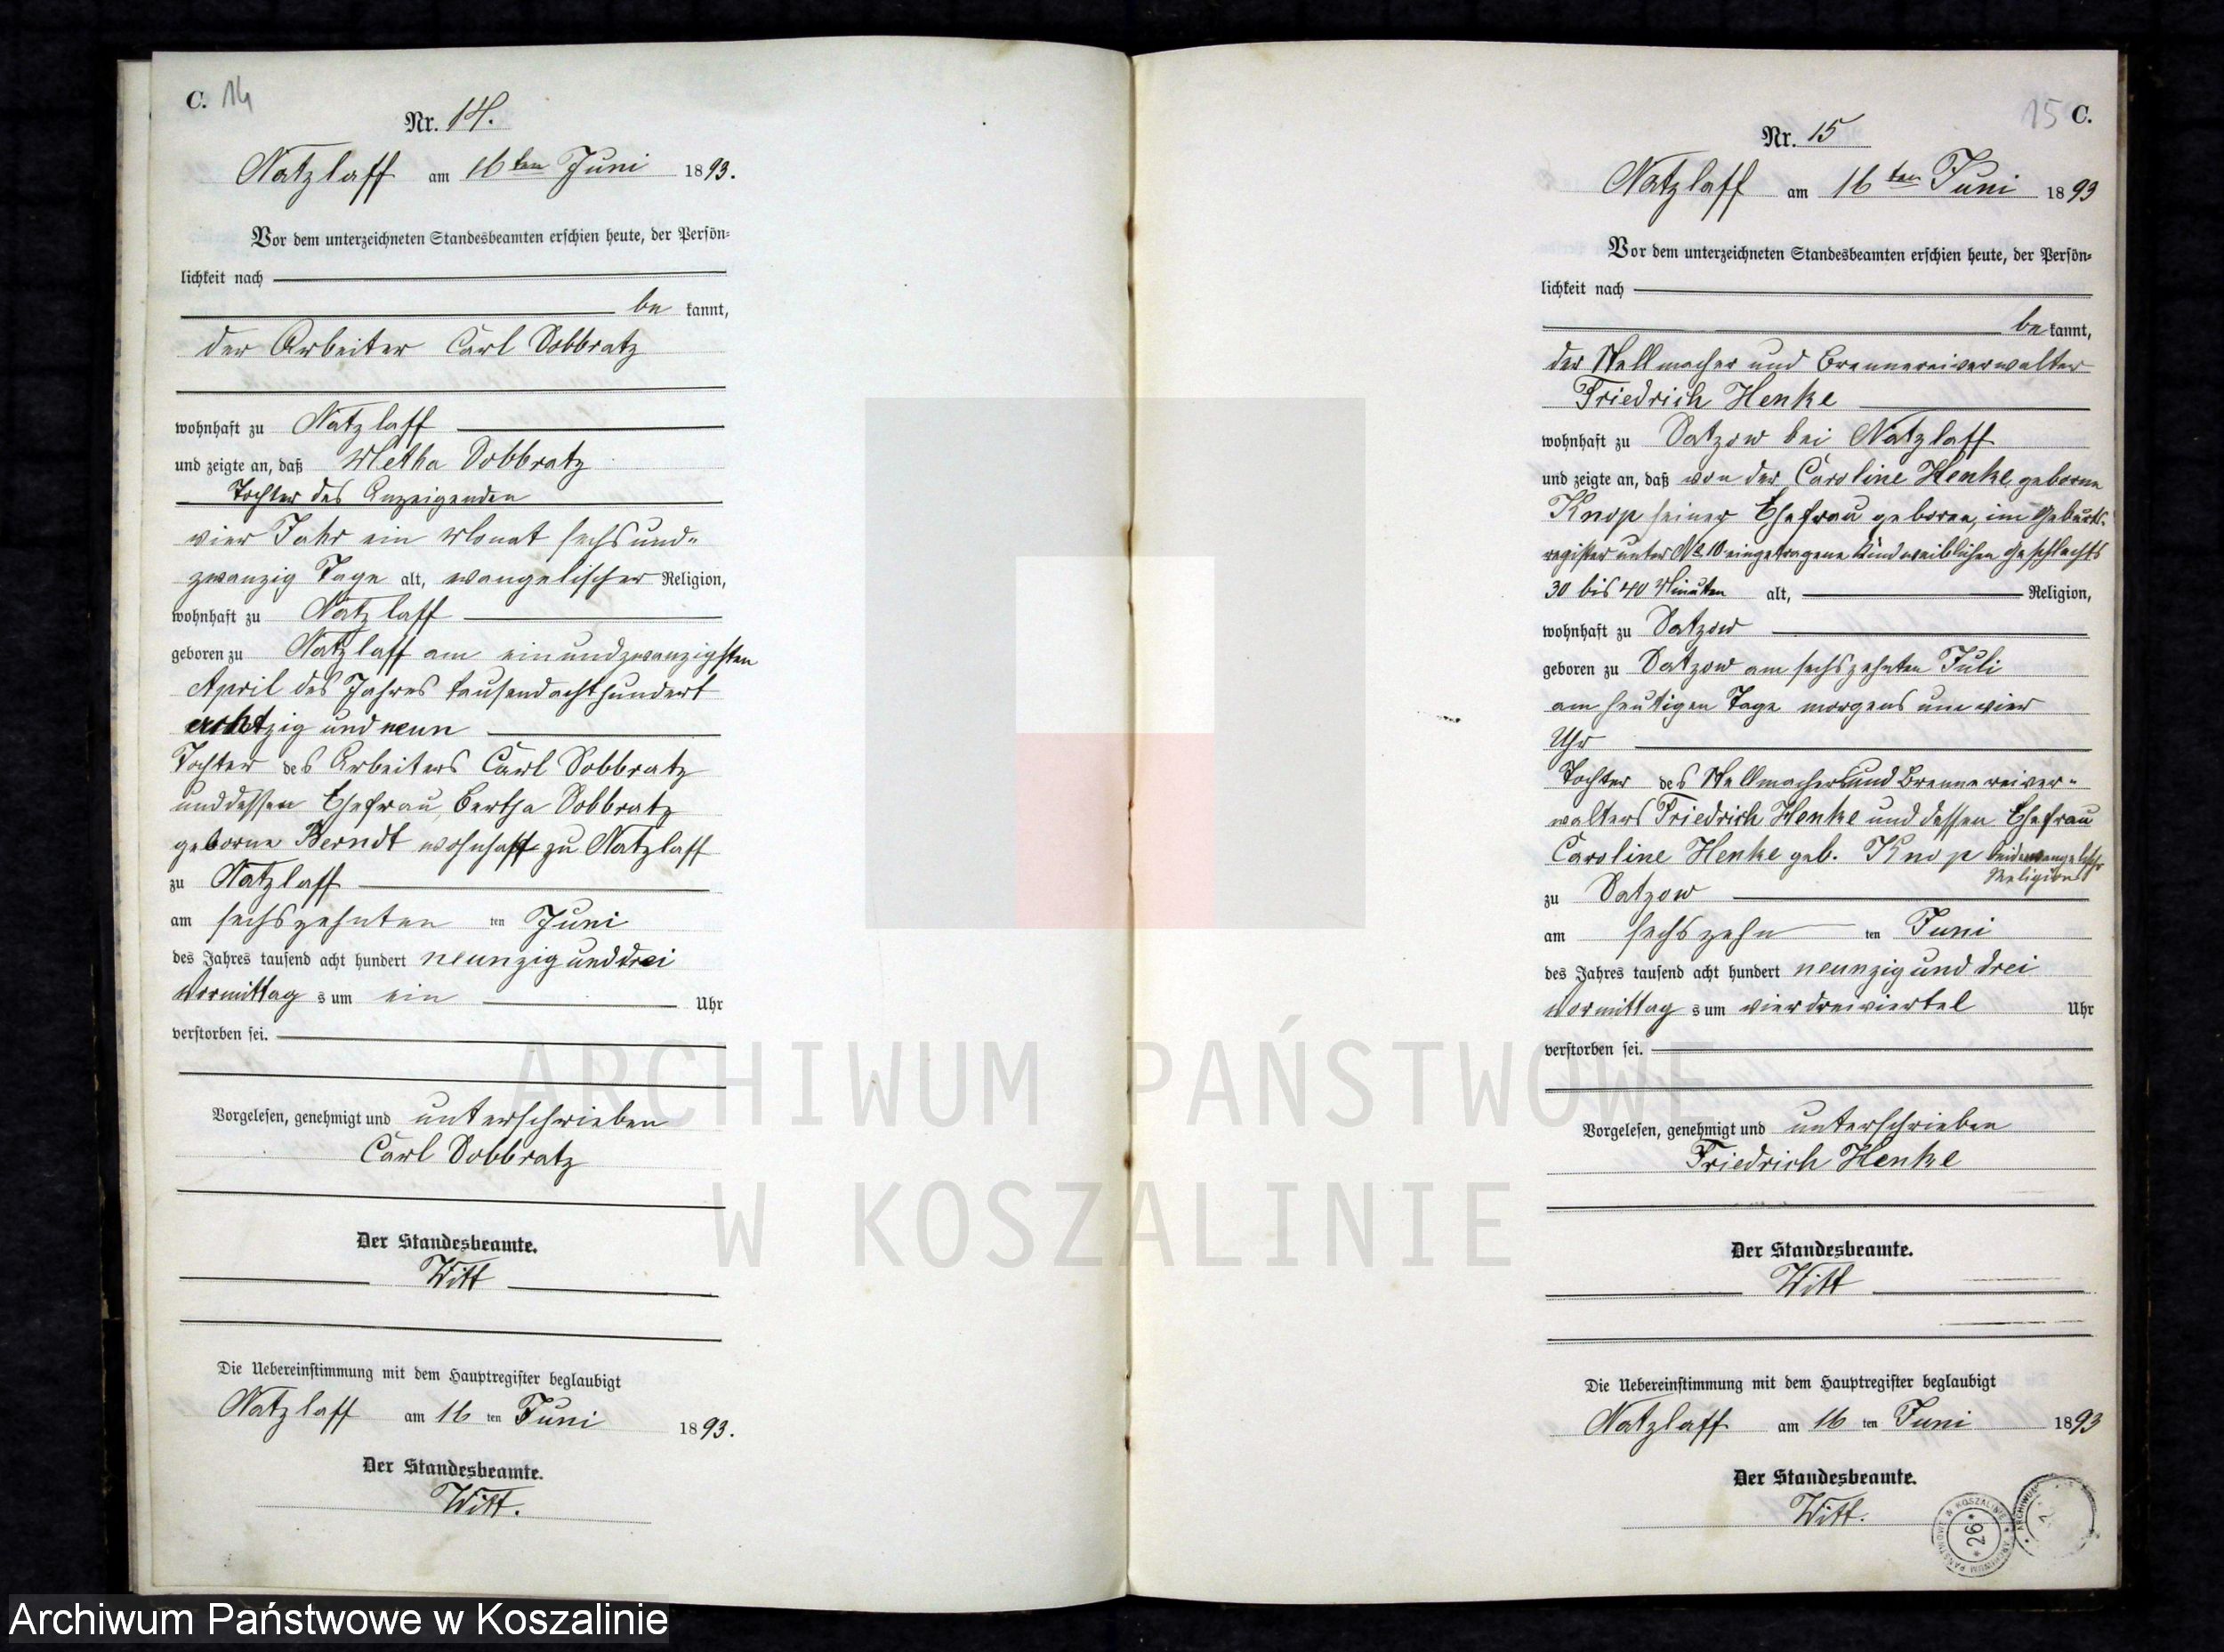 C. 14
Nr. 14.
Natzlaff am 16ten Juni 1893.
Vor dem unterzeichneten Standesbeamten erschien heute, der Persön-
lichkeit nach
be kannt,
der Arbeiter Carl Dobbratz
wohnhaft zu Natzlaff
und zeigte an, daß Metha Dobbratz
Tochter des Anzeigenden
vier Jahr ein Monat sechsund-
zwanzig Tage alt, evangelischer Religion,
wohnhaft zu Natzlaff
geboren zu Natzlaff am einundzwanzigsten
April des Jahres tausendachthundert
achtzig und neun
Tochter des Arbeiters Carl Dobbratz
und dessen Ehefrau Bertha Dobbratz
geborne Berndt wohnhaft zu Natzlaff
zu Natzlaff
am sechszehnten ten Juni
des Jahres tausend acht hundert neunzig und drei
Vormittag s um ein Uhr
verstorben sei.
Vorgelesen, genehmigt und unterschrieben
Carl Dobbratz
Der Standesbeamte.
Witt
Die Uebereinstimmung mit dem Hauptregister beglaubigt
Natzlaff am 16 ten Juni 1893.
Der Standesbeamte.
Witt.
15 C.
Nr. 15
Natzlaff am 16ten Juni 1893
Vor dem unterzeichneten Standesbeamten erschien heute, der Persön-
lichkeit nach
be kannt,
der Stellmacher und Brennereiverwalter
Friedrich Henke
wohnhaft zu Datzow bei Natzlaff
und zeigte an, daß von der Caroline Henke geborne
Knop seiner Ehefrau geboren, im Geburts-
register unter No 10 eingetragene Kind weiblichen Geschlechts
30 bis 40 Minuten alt, Religion,
wohnhaft zu Datzow
geboren zu Datzow am sechszehnten Juli
am heutigen Tage morgens um vier
Uhr
Tochter des Stellmachers und Brennereiver-
walters Friedrich Henke und dessen Ehefrau
Caroline Henke geb. Knop beide evangelischer
Religion
zu Datzow
am sechszehn ten Juni
des Jahres tausend acht hundert neunzig und drei
Vormittag s um vierdreiviertel Uhr
verstorben sei.
Vorgelesen, genehmigt und unterschrieben
Friedrich Henke
Der Standesbeamte.
Witt
Die Uebereinstimmung mit dem Hauptregister beglaubigt
Natzlaff am 16 ten Juni 1893
Der Standesbeamte.
Witt.
ARCHIWUM PAŃSTWOWE W KOSZALINIE
*26*
ARCHIWUM
ARCHIWUM PAŃSTWOWE
W KOSZALINIE
Archiwum Państwowe w Koszalinie